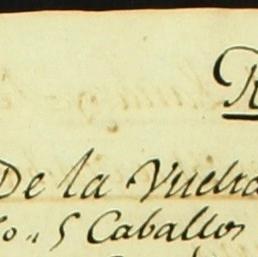 R
De la Vuelta
o,, 5 Caballos